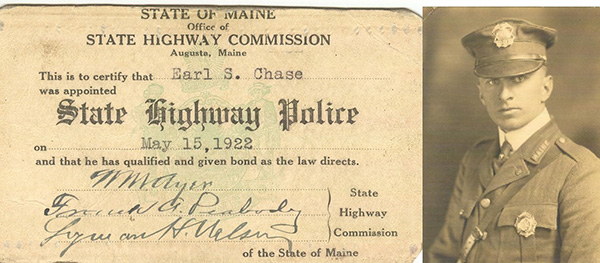 STATE OF MAINE
Office of
STATE HIGHWAY COMMISSION
Augusta, Maine
This is to certify that Earl S. Chase
was appointed
State Highway Police
on May 15, 1922
and that he has qualified and given bond as the law directs.
Wm Ayer
Frank A. Peabody
Lyman H. Nelson
State
Highway
Commission
of the State of Maine
MAINE